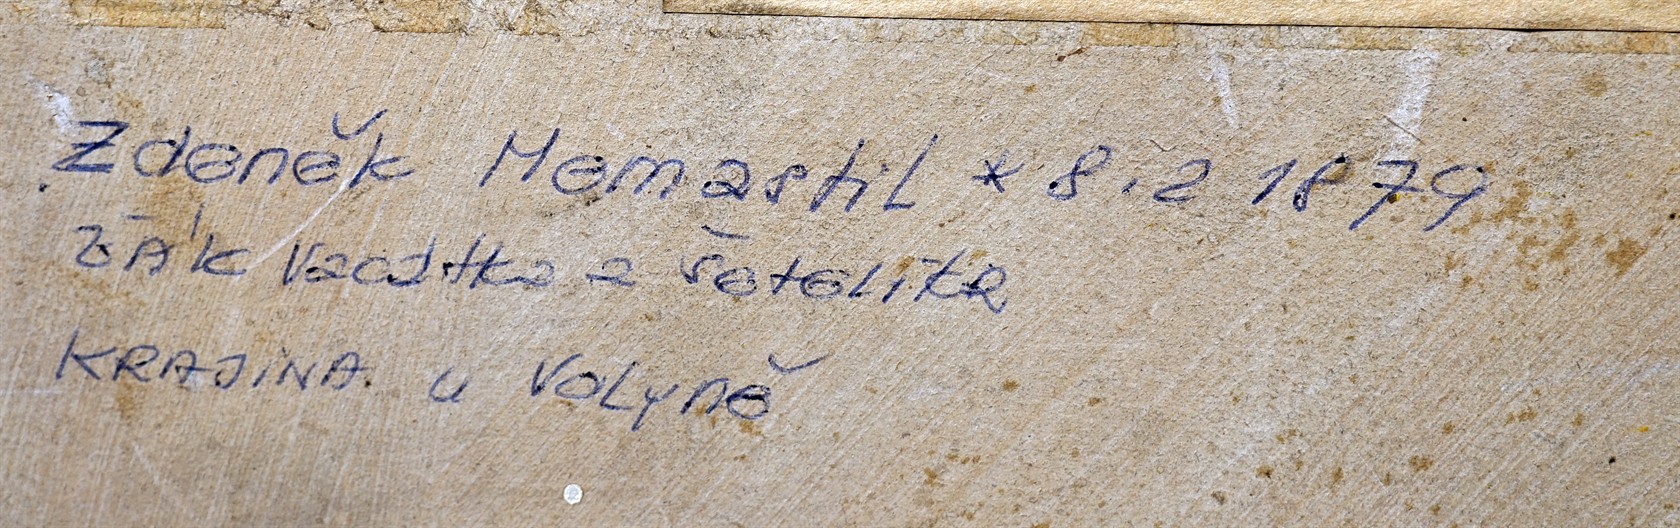 Zdeněk Hemastil * 8.2 1879
žák Vacátka a Šetelíka
KRAJINA u Volyně